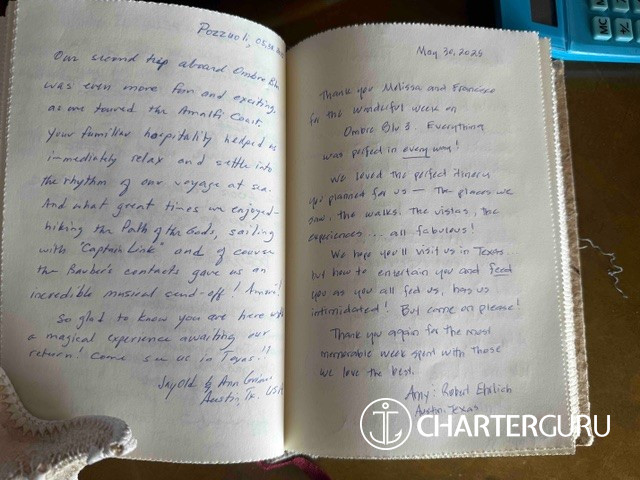 Pozzuoli,
Our second trip aboard Ombre Blu
was even more fun and exciting,
as we toured the Amalfi Coast.
Your familiar hospitality helped us
immediately relax and settle into
the rhythm of our voyage at sea.
And what great times we enjoyed -
hiking the Path of the Gods, sailing
with "Captain Link" and of course
the Barber's contacts gave us an
incredible musical send-off!
So glad to know you are here with
a magical experience awaiting our
return! Come see us in Texas!!
& Ann
Austin, Tx. USA
May 30, 2025
Thank you Melissa and Francisco
for the wonderful week on
Ombre Blu 3. Everything
was perfect in every way!
We loved the perfect itinery
you planned for us — The places we
saw, the walks. The vistas, the
experiences ... all fabulous!
We hope you'll visit us in Texas...
but how to entertain you and feed
you as you all fed us, has us
intimidated! But come on please!
Thank you again for the most
memorable week spent with those
we love the best.
Amy & Robert Ehrlich
Austin, Texas
CHARTERGURU
MC